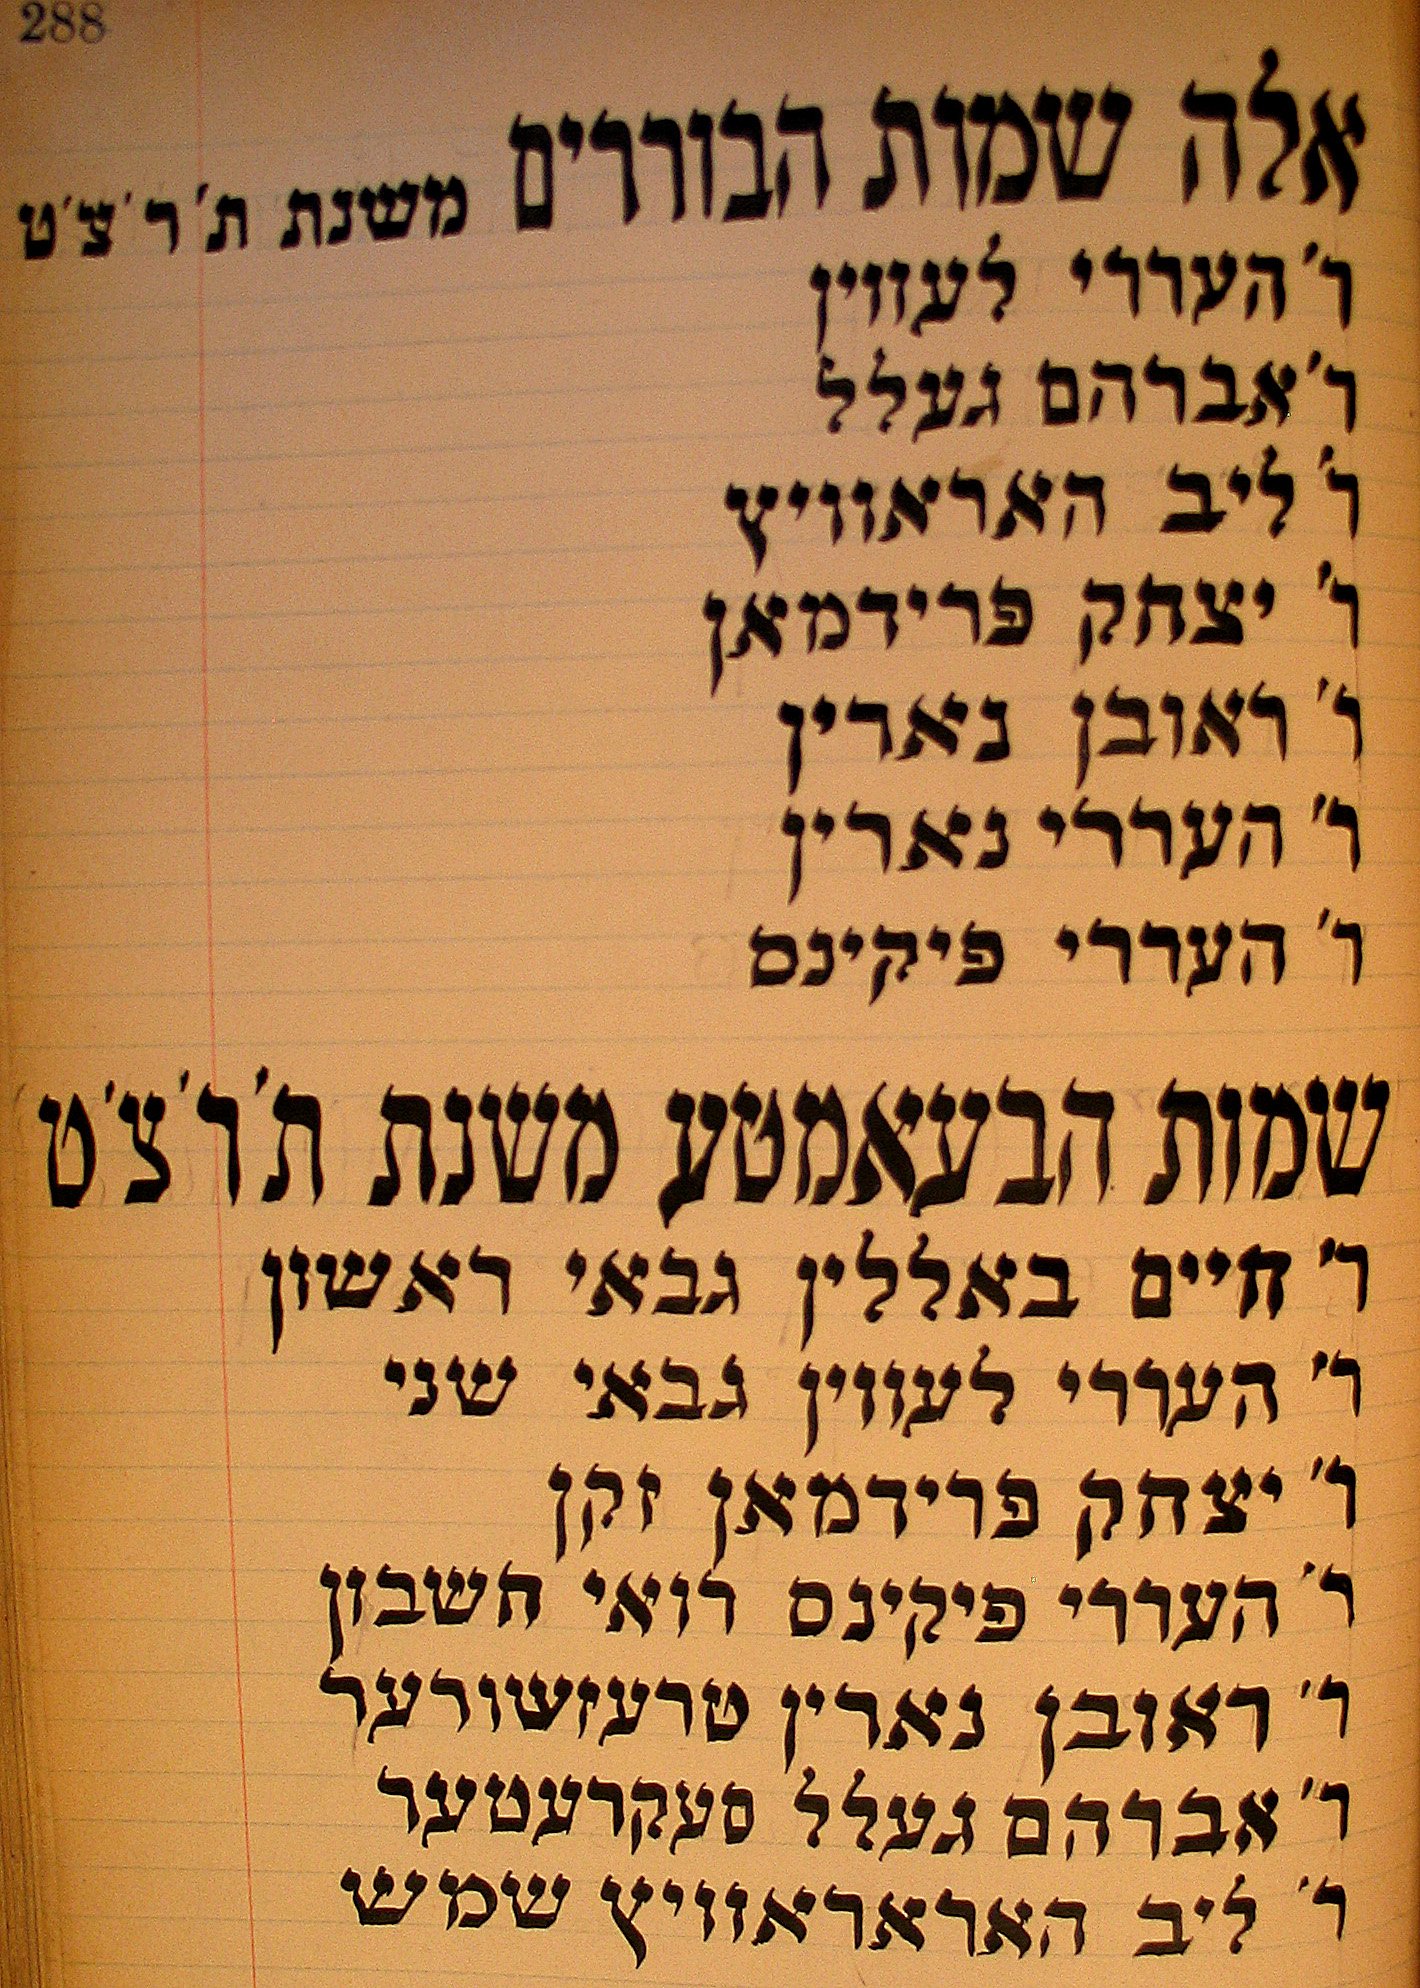 288
אלה שמות הבוררים משנת ת'ר'צ'ט
ר' העררי לעווין
ר' אברהם געלל
ר' ליב האראוויץ
ר' יצחק פרידמאן
ר' ראובן נארין
ר' העררי נארין
ר' העררי פיקינס
שמות הבעאמטע משנת ת'ר'צ'ט
ר' חיים באללין גבאי ראשון
ר' העררי לעווין גבאי שני
ר' יצחק פרידמאן זקן
ר' העררי פיקינס רואי חשבון
ר' ראובן נארין טרעזשורער
ר' אברהם געלל סעקרעטער
ר' ליב האראראוויץ שמש